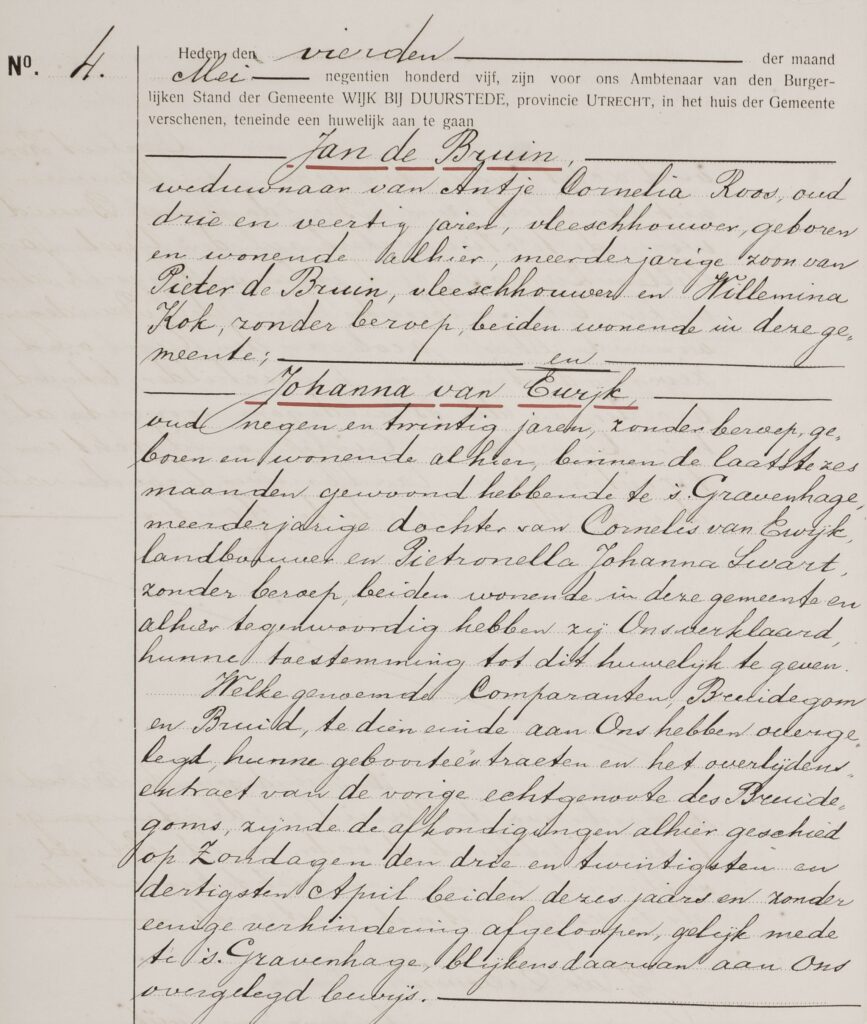 No. 4.
Heden den vierden der maand
Mei negentien honderd vijf, zijn voor ons Ambtenaar van den Burger-
lijken Stand der Gemeente WIJK BIJ DUURSTEDE, provincie UTRECHT, in het huis der Gemeente
verschenen, teneinde een huwelijk aan te gaan
Jan de Bruin,
weduwnaar van Antje Cornelia Roos, oud
drie en veertig jaren, vleeschhouwer, geboren
en wonende alhier, meerderjarige zoon van
Pieter de Bruin, vleeschhouwer en Willemina
Kok, zonder beroep, beiden wonende in deze ge-
meente; en
Johanna van Ewijk,
oud negen en twintig jaren, zonder beroep, ge-
boren en wonende alhier, binnen de laatste zes
maanden gewoond hebbende te 's Gravenhage,
meerderjarige dochter van Cornelis van Ewijk,
landbouwer en Pietronella Johanna Swart,
zonder beroep, beiden wonende in deze gemeente en
alhier tegenwoordig hebben zij Ons verklaard,
hunne toestemming tot dit huwelijk te geven.
Welke genoemde Comparanten, Bruidegom
en Bruid, te dien einde aan Ons hebben overge-
legd, hunne geboorteëxtracten en het overlijdens-
extract van de vorige echtgenoote des Bruide-
goms, zijnde de afkondigingen alhier geschied
op Zondagen den drie en twintigsten en
dertigsten April beiden dezes jaars en zonder
eenige verhindering afgeloopen, gelijk mede
te 's Gravenhage, blijkens daarvan aan Ons
overgelegd bewijs.